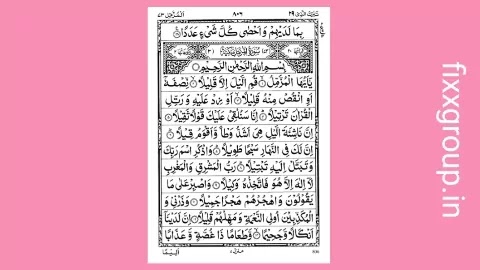 تبٰرك الذی ٢٩ المزمل ٧٣
بِمَا لَدَيْهِمْ وَاَحْصٰى كُلَّ شَيْءٍ عَدَدًا
بِسْمِ اللّٰهِ الرَّحْمٰنِ الرَّحِيْمِ
يٰٓاَيُّهَا الْمُزَّمِّلُ قُمِ الَّيْلَ اِلَّا قَلِيْلًا نِّصْفَهٗٓ
اَوِ انْقُصْ مِنْهُ قَلِيْلًا اَوْ زِدْ عَلَيْهِ وَرَتِّلِ
الْقُرْاٰنَ تَرْتِيْلًا اِنَّا سَنُلْقِيْ عَلَيْكَ قَوْلًا ثَقِيْلًا
اِنَّ نَاشِئَةَ الَّيْلِ هِيَ اَشَدُّ وَطْاً وَّاَقْوَمُ قِيْلًا
اِنَّ لَكَ فِي النَّهَارِ سَبْحًا طَوِيْلًا وَاذْكُرِ اسْمَ رَبِّكَ
وَتَبَتَّلْ اِلَيْهِ تَبْتِيْلًا رَبُّ الْمَشْرِقِ وَالْمَغْرِبِ
لَآ اِلٰهَ اِلَّا هُوَ فَاتَّخِذْهُ وَكِيْلًا وَاصْبِرْ عَلٰى مَا
يَقُوْلُوْنَ وَاهْجُرْهُمْ هَجْرًا جَمِيْلًا وَذَرْنِيْ وَ
الْمُكَذِّبِيْنَ اُولِي النَّعْمَةِ وَمَهِّلْهُمْ قَلِيْلًا اِنَّ لَدَيْنَآ
اَنْكَالًا وَّجَحِيْمًا وَّطَعَامًا ذَا غُصَّةٍ وَّعَذَابًا
اَلِيْمًا
fixxgroup.in